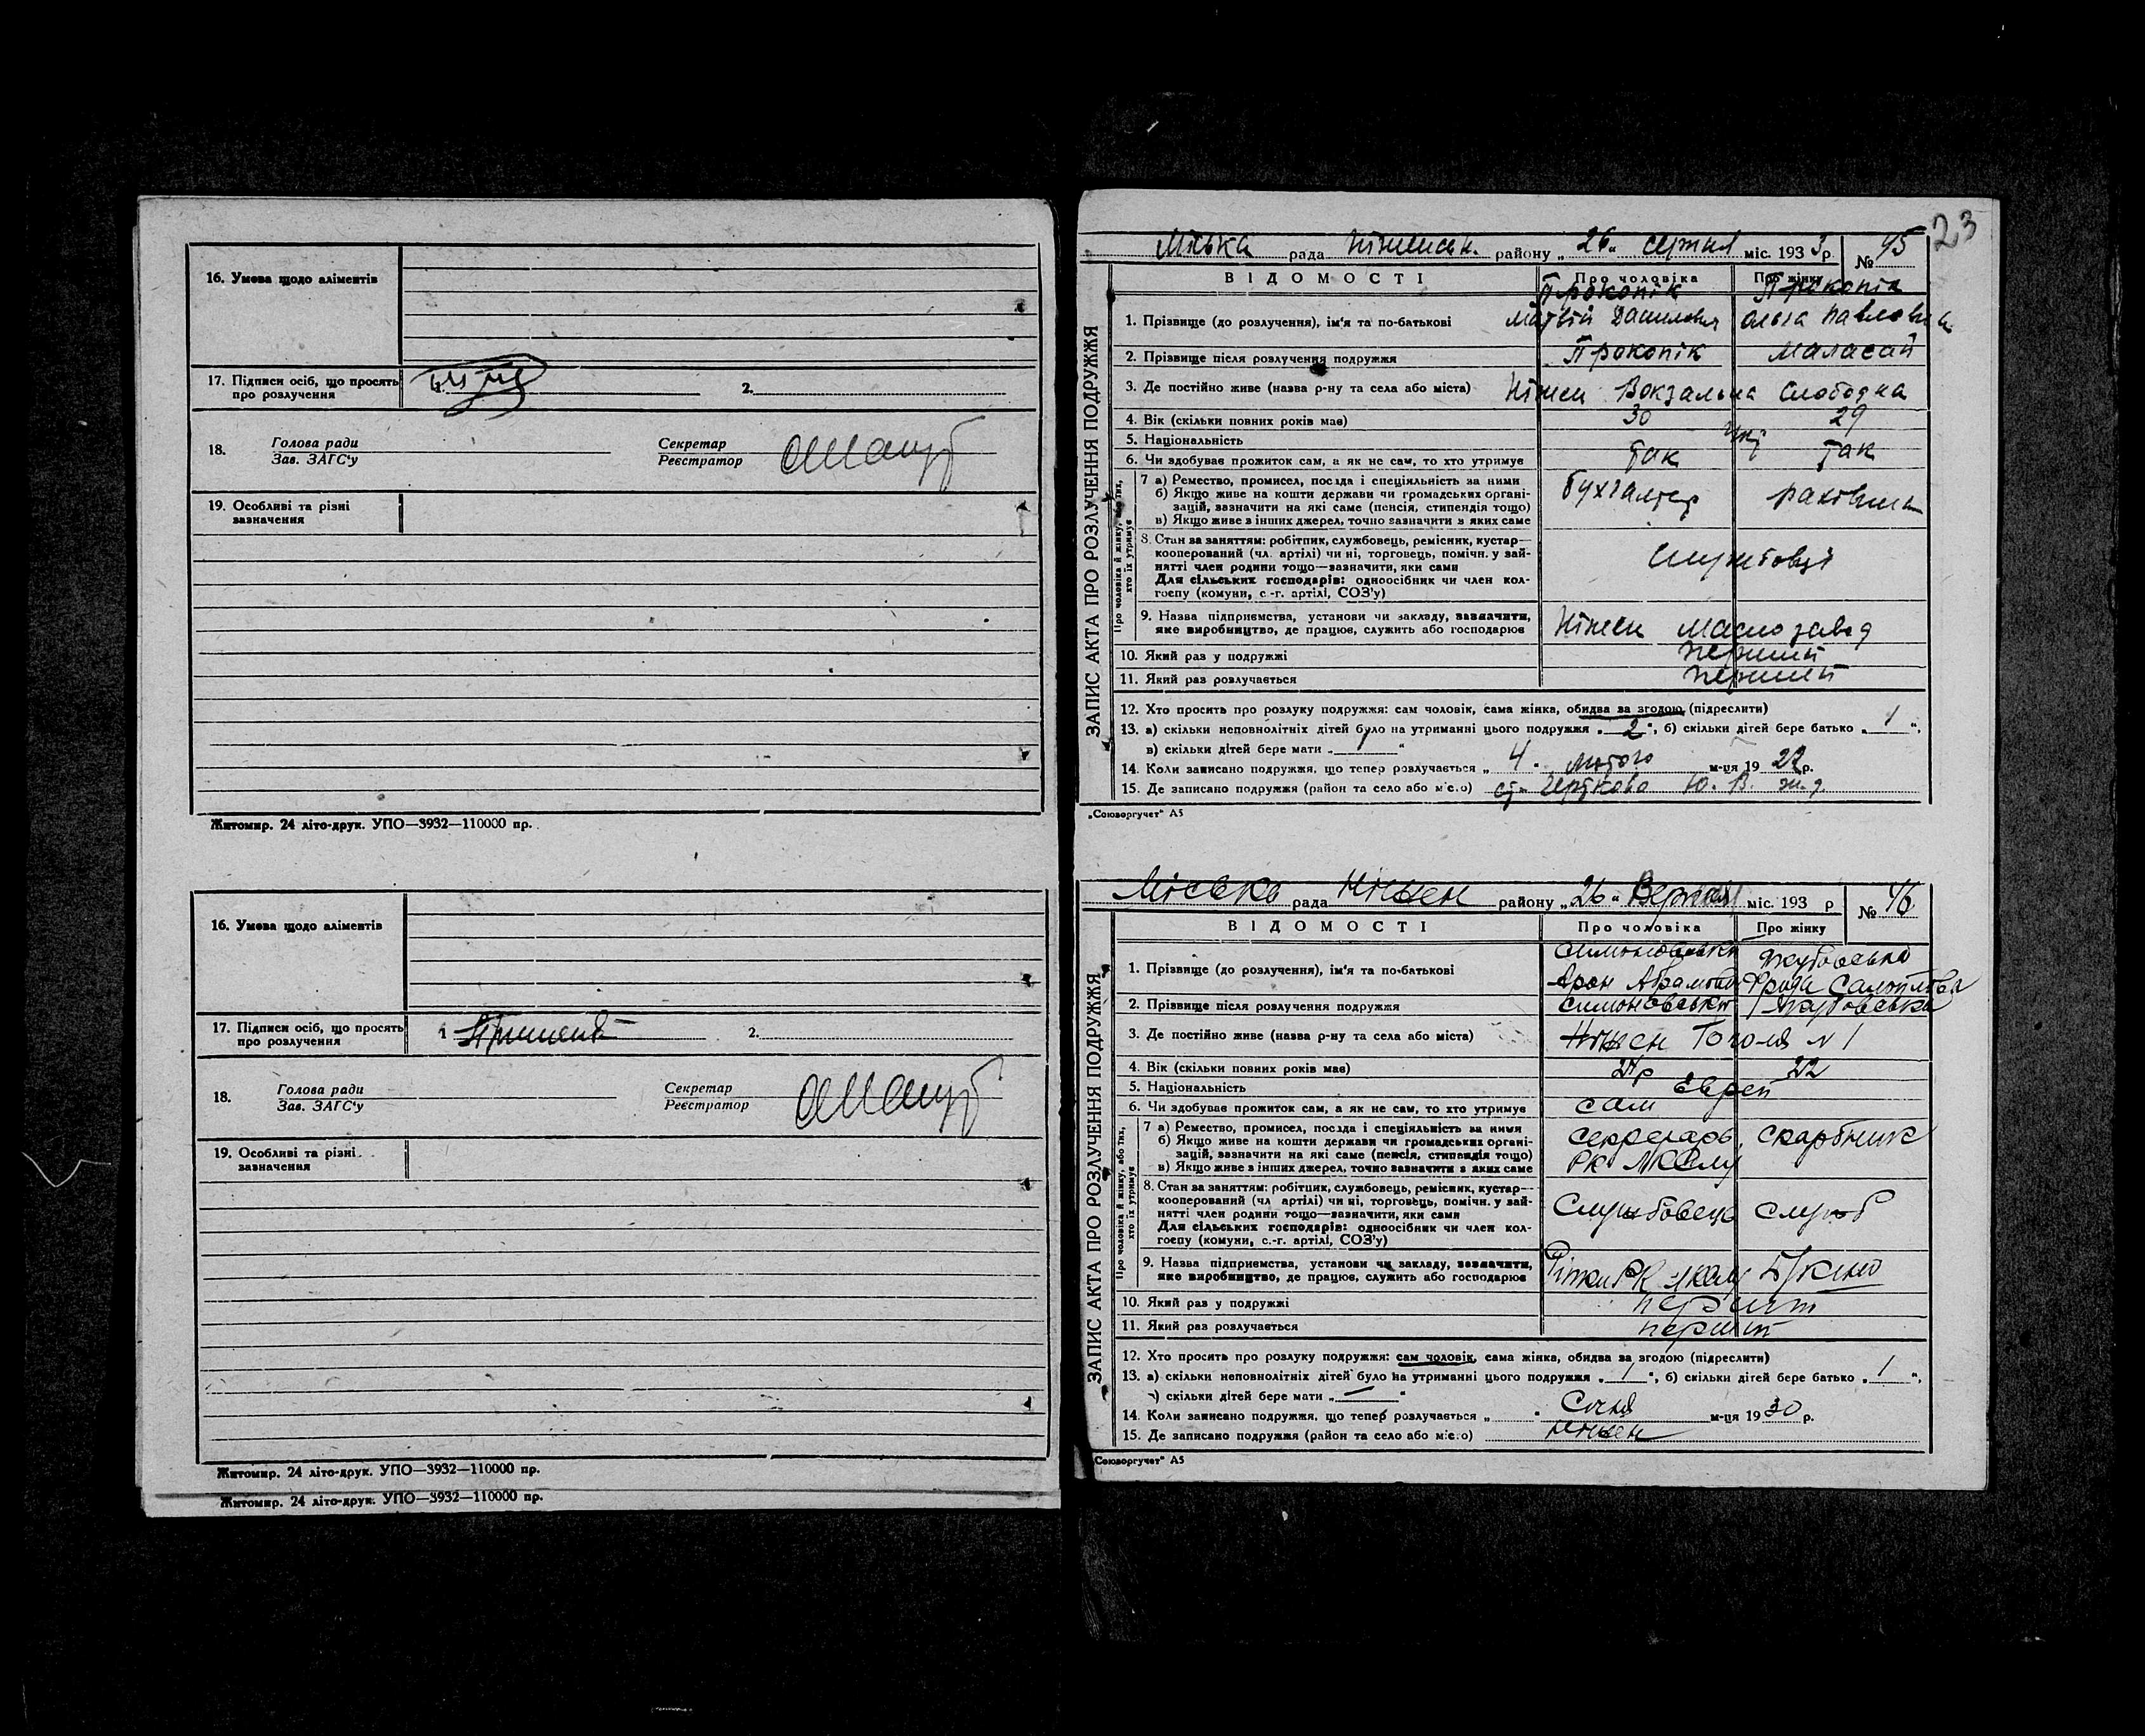 16. Умова щодо аліментів
17. Підписи осіб, що просять
про розлучення
1.
2.
18.
Голова ради
Зав. ЗАГС'у
Секретар
Реєстратор
19. Особливі та різні
зазначення
Житомир. 24 літо-друк. УПО—3932—110000 пр.
16. Умова щодо аліментів
17. Підписи осіб, що просять
про розлучення
1
2.
18.
Голова ради
Зав. ЗАГС'у
Секретар
Реєстратор
19. Особливі та різні
зазначення
Житомир. 24 літо-друк. УПО—3932—110000 пр.
Житомир. 24 літо-друк. УПО—3932—110000 пр.
23
Міська рада Ніженськ. району „26“ серпня міс. 1933 р. № 45
ЗАПИС АКТА ПРО РОЗЛУЧЕННЯ ПОДРУЖЖЯ
ВІДОМОСТІ Про чоловіка Про жінку
Прокопік
1. Прізвище (до розлучення), ім'я та по-батькові Матвій Данилович Ольга Павловна
2. Прізвище після розлучення подружжя Прокопік Маласай
3. Де постійно живе (назва р-ну та села або міста) Ніжен Вокзальна Слободка
4. Вік (скільки повних років має) 30 29
5. Національність Укр
6. Чи здобуває прожиток сам, а як не сам, то хто утримує так так
Про чоловіка й жінку, або тих, хто їх утримує
7 а) Ремество, промисел, посада і спеціяльність за ними бухгалтер
б) Якщо живе на кошти держави чи громадських органі-
зацій, зазначити на які саме (пенсія, стипендія тощо)
в) Якщо живе з інших джерел, точно зазначити з яких саме
8. Стан за заняттям: робітник, службовець, ремісник, кустар—
кооперований (чл. артілі) чи ні, торговець, помічн. у зай-
нятті член родини тощо—зазначити, яки сами службовці
Для сільських господарів: одноосібник чи член кол-
госпу (комуни, с.-г. артілі, СОЗ'у)
9. Назва підприємства, установи чи закладу, зазначити,
яке виробництво, де працює, служить або господарює Ніжен Маслозавод
10. Який раз у подружжі перший
11. Який раз розлучається перший
12. Хто просить про розлуку подружжя: сам чоловік, сама жінка, обидва за згодою (підреслити)
13. а) скільки неповнолітніх дітей було на утриманні цього подружжя „2“, б) скільки дітей бере батько „1“,
в) скільки дітей бере мати „1“
14. Коли записано подружжя, що тепер розлучається „4“ лютого м-ця 1922 р.
15. Де записано подружжя (район та село або місто) ст. Чертково Ю. В. ж. д.
„Союзоргучет“ А5
Місько рада Ніжен району „26“ Вересня міс. 193 р № 46
ЗАПИС АКТА ПРО РОЗЛУЧЕННЯ ПОДРУЖЖЯ
ВІДОМОСТІ Про чоловіка Про жінку
1. Прізвище (до розлучення), ім'я та по-батькові
Арон Абрамов Фрида
2. Прізвище після розлучення подружжя Симоновський
3. Де постійно живе (назва р-ну та села або міста) Ніжен Гоголя N 1
4. Вік (скільки повних років має) 22
5. Національність Євреї
6. Чи здобуває прожиток сам, а як не сам, то хто утримує сам
Про чоловіка й жінку, або тих, хто їх утримує
7 а) Ремество, промисел, посада і спеціяльність за ними секретарь скарбник
б) Якщо живе на кошти держави чи громадських органі-
зацій, зазначити на які саме (пенсія, стипендія тощо) РК ЛКСМУ
в) Якщо живе з інших джерел, точно зазначити з яких саме
8. Стан за заняттям: робітник, службовець, ремісник, кустар—
кооперований (чл артілі) чи ні, торговець, помічн. у зай-
нятті член родини тощо—зазначити, яки сами Службовець служб
Для сільських господарів: одноосібник чи член кол-
госпу (комуни, с.-г. артілі, СОЗ'у)
9. Назва підприємства, установи чи закладу, зазначити,
яке виробництво, де працює, служить або господарює РК ЛКСМУ
10. Який раз у подружжі перший
11. Який раз розлучається перший
12. Хто просить про розлуку подружжя: сам чоловік, сама жінка, обидва за згодою (підреслити)
13. а) скільки неповнолітніх дітей було на утриманні цього подружжя „1“, б) скільки дітей бере батько „1“,
в) скільки дітей бере мати „—“
14. Коли записано подружжя, що тепер розлучається „ “ Січня м-ця 1930 р.
15. Де записано подружжя (район та село або місто) Ніжен
„Союзоргучет“ А5